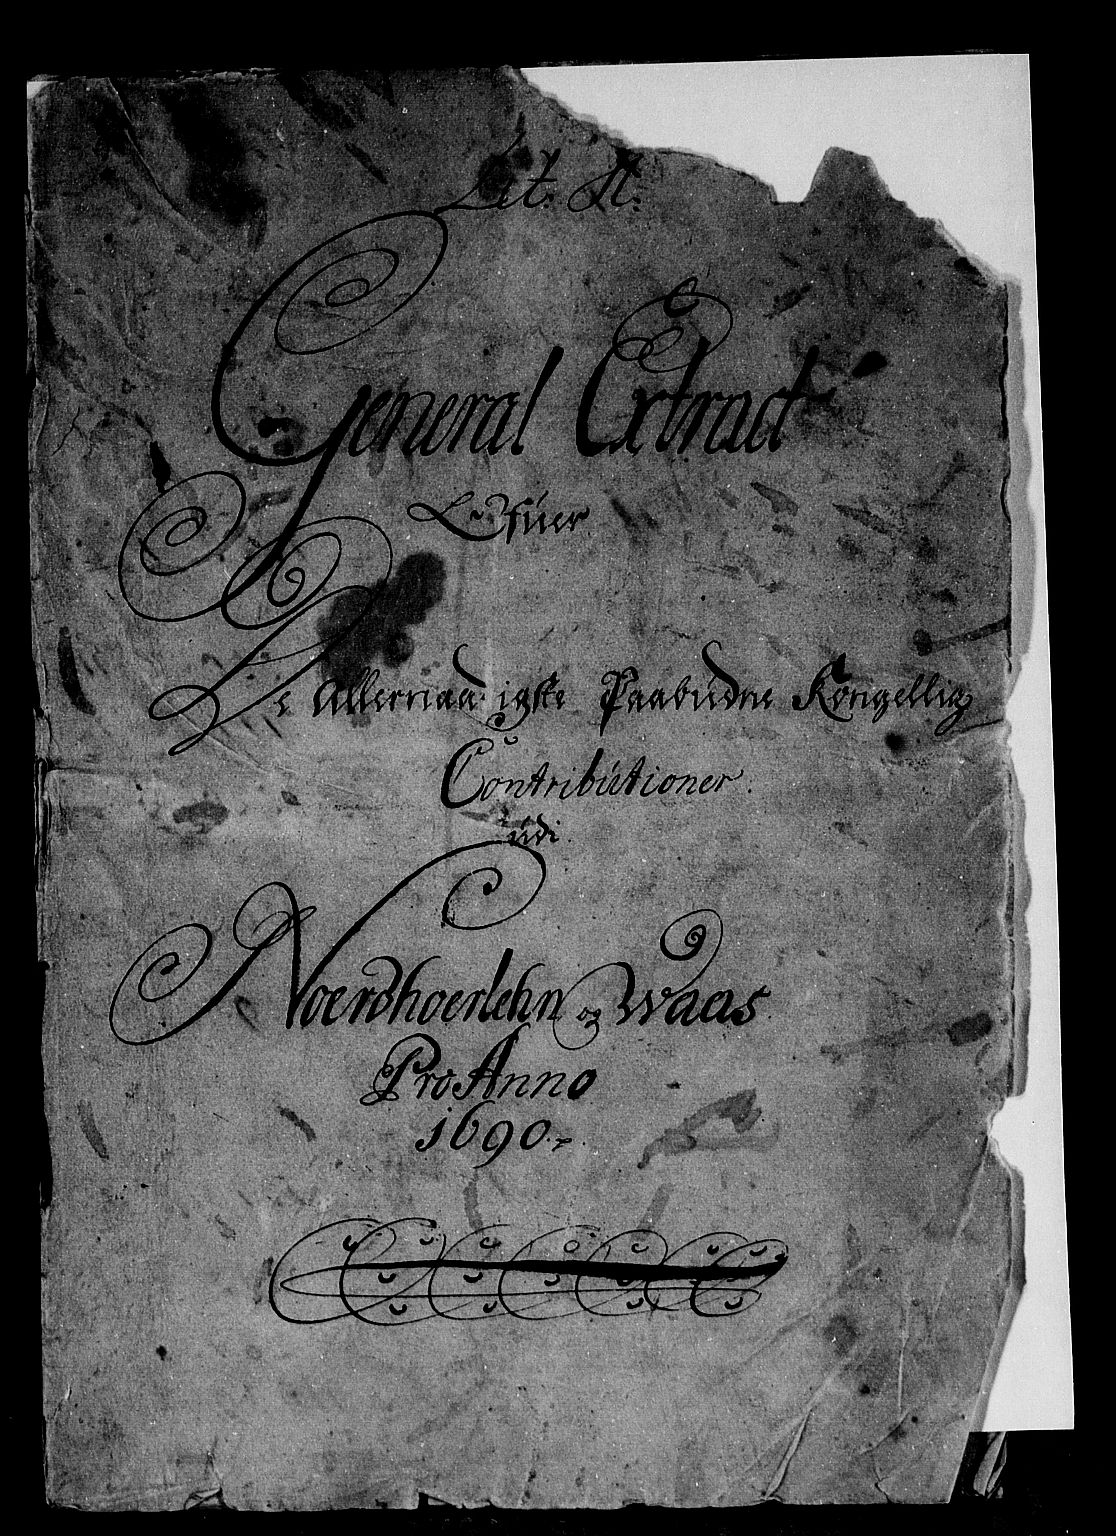 Lit: A:
General Extract
Ofuer
De Allernaadigste Paabudne Kongellig
Contributioner.
udi.
Noerdhoerlehn og Waas
Pro Anno
1690.